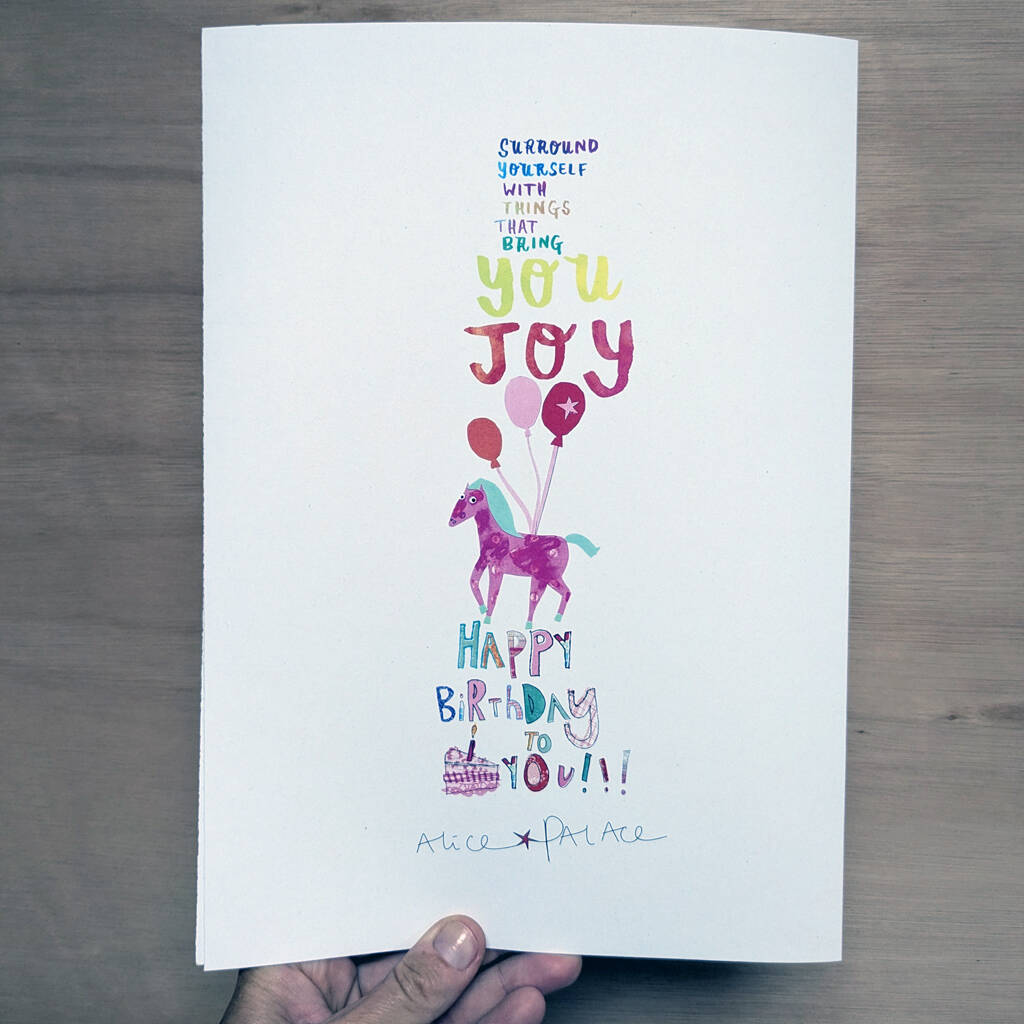 SURROUND
YOURSELF
WITH
THINGS
THAT
BRING
YOU
JOY
HAPPY
BiRThDAy
TO
YOU!!!
Alice PALAce